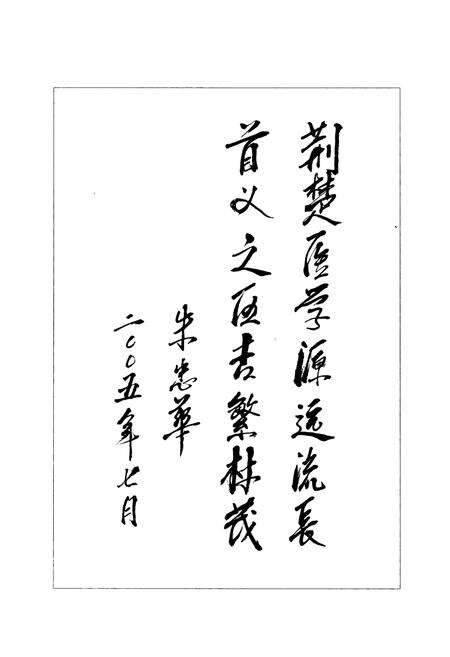 荆楚医学源远流長
首义之区杏繁林茂
朱忠華
二〇〇五年七月